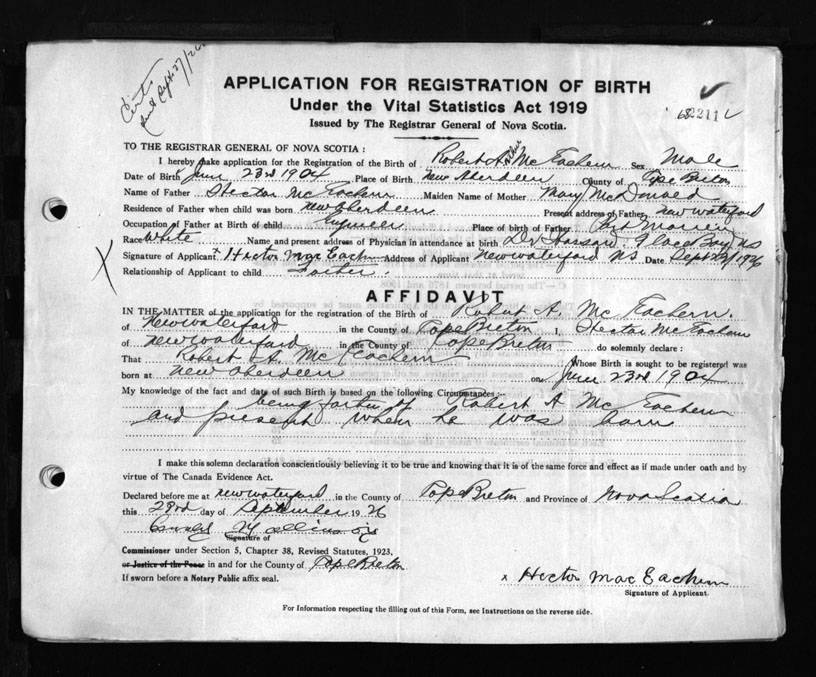 Sent Sept 27/26
APPLICATION FOR REGISTRATION OF BIRTH
Under the Vital Statistics Act 1919
Issued by The Registrar General of Nova Scotia.
TO THE REGISTRAR GENERAL OF NOVA SCOTIA :
I hereby make application for the Registration of the Birth of Robert Arthur McEachern Sex Male
Date of Birth June 23rd 1904 Place of Birth New Aberdeen County of Cape Breton
Name of Father Hector McEachern Maiden Name of Mother Mary McDonald
Residence of Father when child was born New Aberdeen Present address of Father New Waterford
Occupation of Father at Birth of child Engineer Place of birth of Father Port Morien
Race White Name and present address of Physician in attendance at birth Dr Glace Bay, NS
Signature of Applicant x Hector MacEachern Address of Applicant New Waterford NS Date Sept 23/1926
Relationship of Applicant to child Father.
AFFIDAVIT
IN THE MATTER of the application for the registration of the Birth of Robert A. McEachern.
of New Waterford in the County of Cape Breton I, Hector McEachern
of New Waterford in the County of Cape Breton do solemnly declare :
That Robert A. McEachern Whose Birth is sought to be registered was
born at New Aberdeen on June 23rd 1904
My knowledge of the fact and date of such Birth is based on the following Circumstances:-
being father of Robert A McEachern
and present when he was born
I make this solemn declaration conscientiously believing it to be true and knowing that it is of the same force and effect as if made under oath and by
virtue of The Canada Evidence Act.
Declared before me at New Waterford in the County of Cape Breton and Province of Nova Scotia
this 23rd day of September 1926
Signature of
Commissioner under Section 5, Chapter 38, Revised Statutes, 1923,
or Justice of the Peace in and for the County of Cape Breton
If sworn before a Notary Public affix seal.
x Hector MacEachern
Signature of Applicant.
For Information respecting the filling out of this Form, see Instructions on the reverse side.